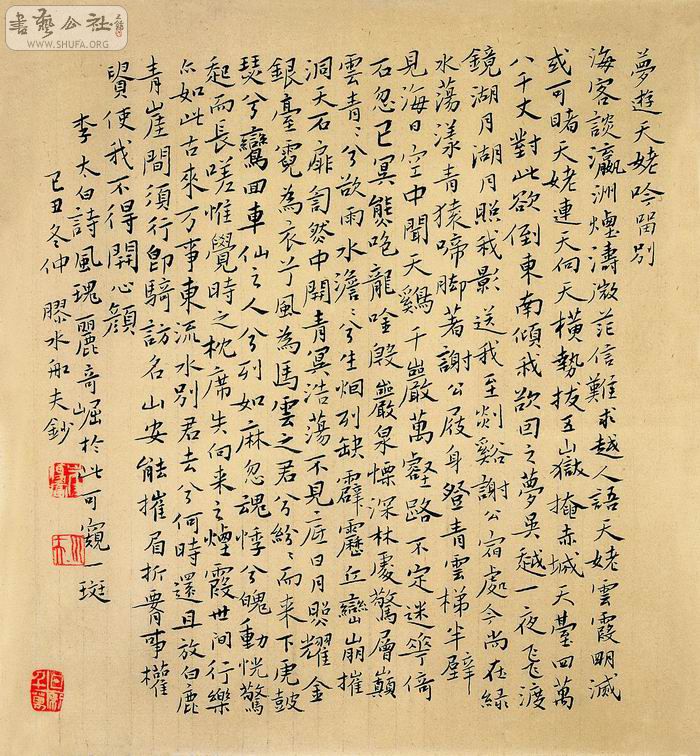 書藝公社
WWW.SHUFA.ORG
夢遊天姥吟留別
海客談瀛洲煙濤微茫信難求越人語天姥雲霞明滅
或可睹天姥連天向天橫勢拔五嶽掩赤城天臺四萬
八千丈對此欲倒東南傾我欲因之夢吳越一夜飛渡
鏡湖月湖月照我影送我至剡谿謝公宿處今尚在綠
水蕩漾青猿啼脚著謝公屐身登青雲梯半壁
見海日空中聞天鷄千巖萬壑路不定迷花倚
石忽已冥熊咆龍吟殷巖泉慄深林處驚層巔
雲青〻兮欲雨水澹〻兮生煙列缺霹靂丘巒崩摧
洞天石扉訇然中開青冥浩蕩不見底日月照耀金
銀臺霓為衣兮風為馬雲之君兮紛〻而来下虎鼓
瑟兮鸞回車仙之人兮列如麻忽魂悸兮魄動恍驚
起而長嗟惟覺時之枕席失向来之煙霞世間行樂
亦如此古來万事東流水別君去兮何時還且放白鹿
青崖間須行即騎訪名山安能摧眉折腰事權
貴使我不得開心顏
李太白詩風瑰麗奇崛於此可窺一斑
己丑冬仲膠水船夫鈔